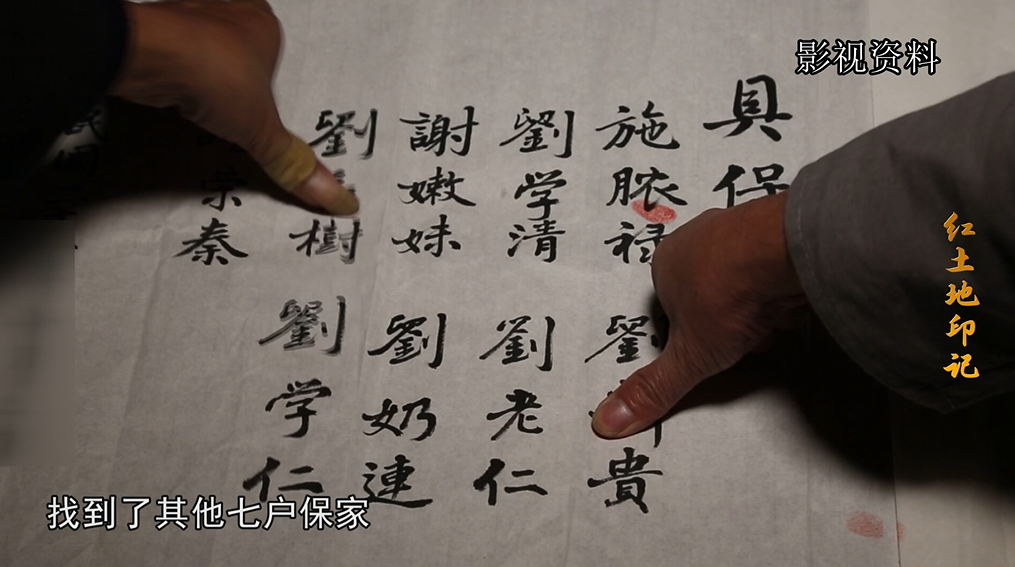 影视资料
红土地印记
具保
施脓禄
劉学清
謝嫩妹
劉 樹
秦
劉 貴
劉老仁
劉奶連
劉学仁
找到了其他七户保家